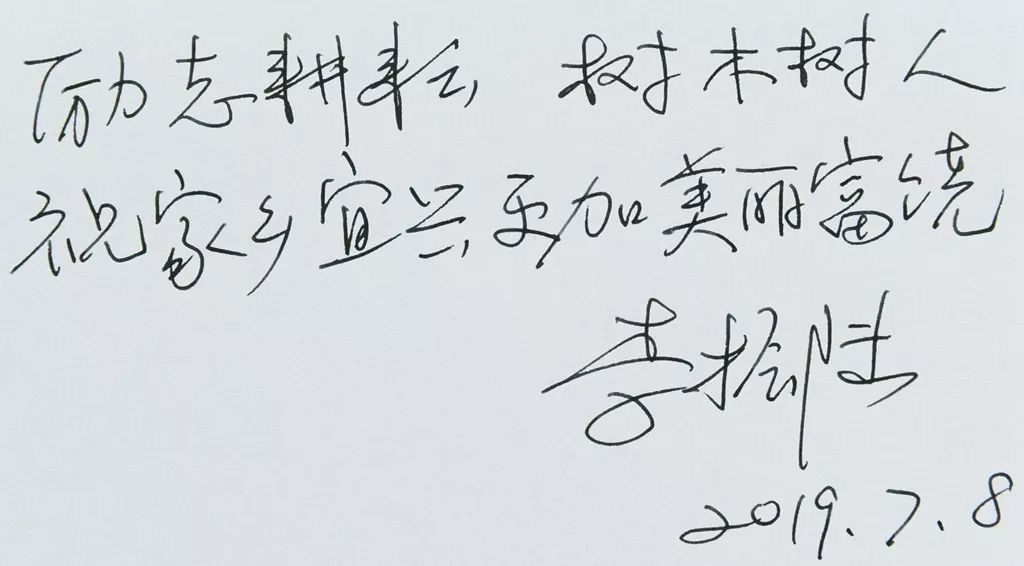 励志耕耘 树木树人
祝家乡宜兴更加美丽富饶
李振陆
2019.7.8